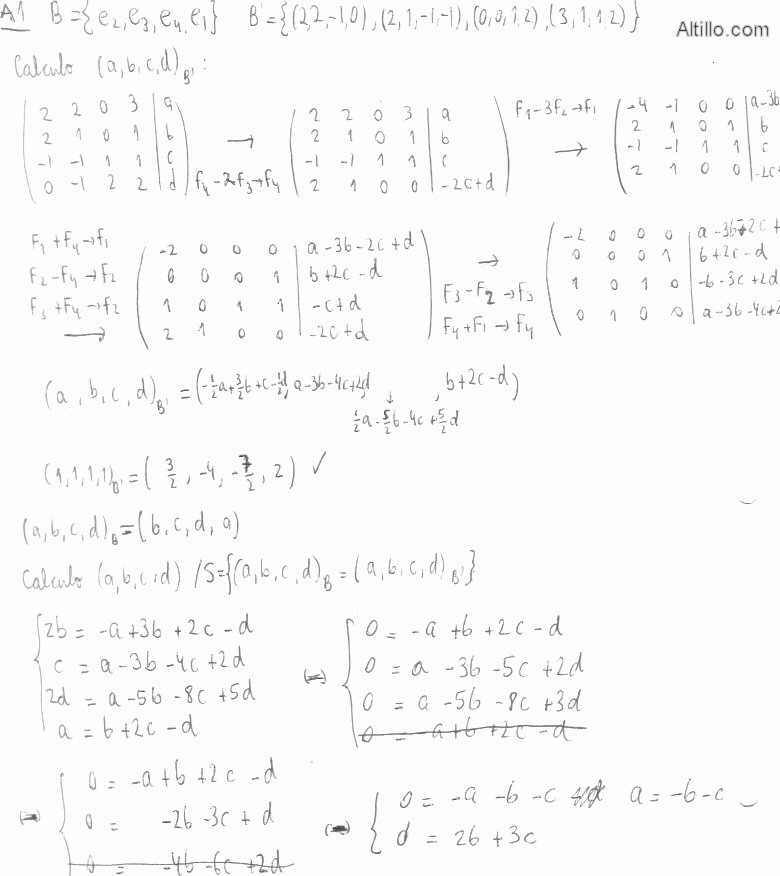 A1 B={e2,e3,e4,e1} B'={(2,2,-1,0),(2,1,-1,-1),(0,0,1,2),(3,1,1,2)}
Altillo.com
Calculo (a,b,c,d)B':
2 2 0 3 | a
2 1 0 1 | b
-1 -1 1 1 | c
0 -1 2 2 | d
F4-2F3→F4
2 2 0 3 | a
2 1 0 1 | b
-1 -1 1 1 | c
2 1 0 0 | -2c+d
F1-3F2→F1
→
-4 -1 0 0 | a-3b
2 1 0 1 | b
-1 -1 1 1 | c
2 1 0 0 | -2c+
F1+F4→F1
F2-F4→F2
F3+F4→F2
→
-2 0 0 0 | a-3b-2c+d
0 0 0 1 | b+2c-d
1 0 1 1 | -c+d
2 1 0 0 | -2c+d
→
F3-F2→F3
F4+F1→F4
-2 0 0 0 | a-3b-2c+
0 0 0 1 | b+2c-d
1 0 1 0 | -b-3c+2d
0 1 0 0 | a-3b-4c+2
(a,b,c,d)B'=(-1/2a+3/2b+c-1/2d, a-3b-4c+2d, ↓ , b+2c-d)
1/2a-5/2b-4c+5/2d
(1,1,1,1)B'=(3/2,-4,-7/2,2) ✓
(a,b,c,d)B=(b,c,d,a)
Calculo (a,b,c,d) /S={(a,b,c,d)B=(a,b,c,d)B'}
2b = -a+3b+2c-d
c = a-3b-4c+2d
2d = a-5b-8c+5d
a = b+2c-d
⇔
0 = -a+b+2c-d
0 = a-3b-5c+2d
0 = a-5b-8c+3d
0 = -a+b+2c-d
⇔
0 = -a+b+2c-d
0 = -2b-3c+d
0 = -4b-6c+2d
⇔
0 = -a-b-c a=-b-c
d = 2b+3c